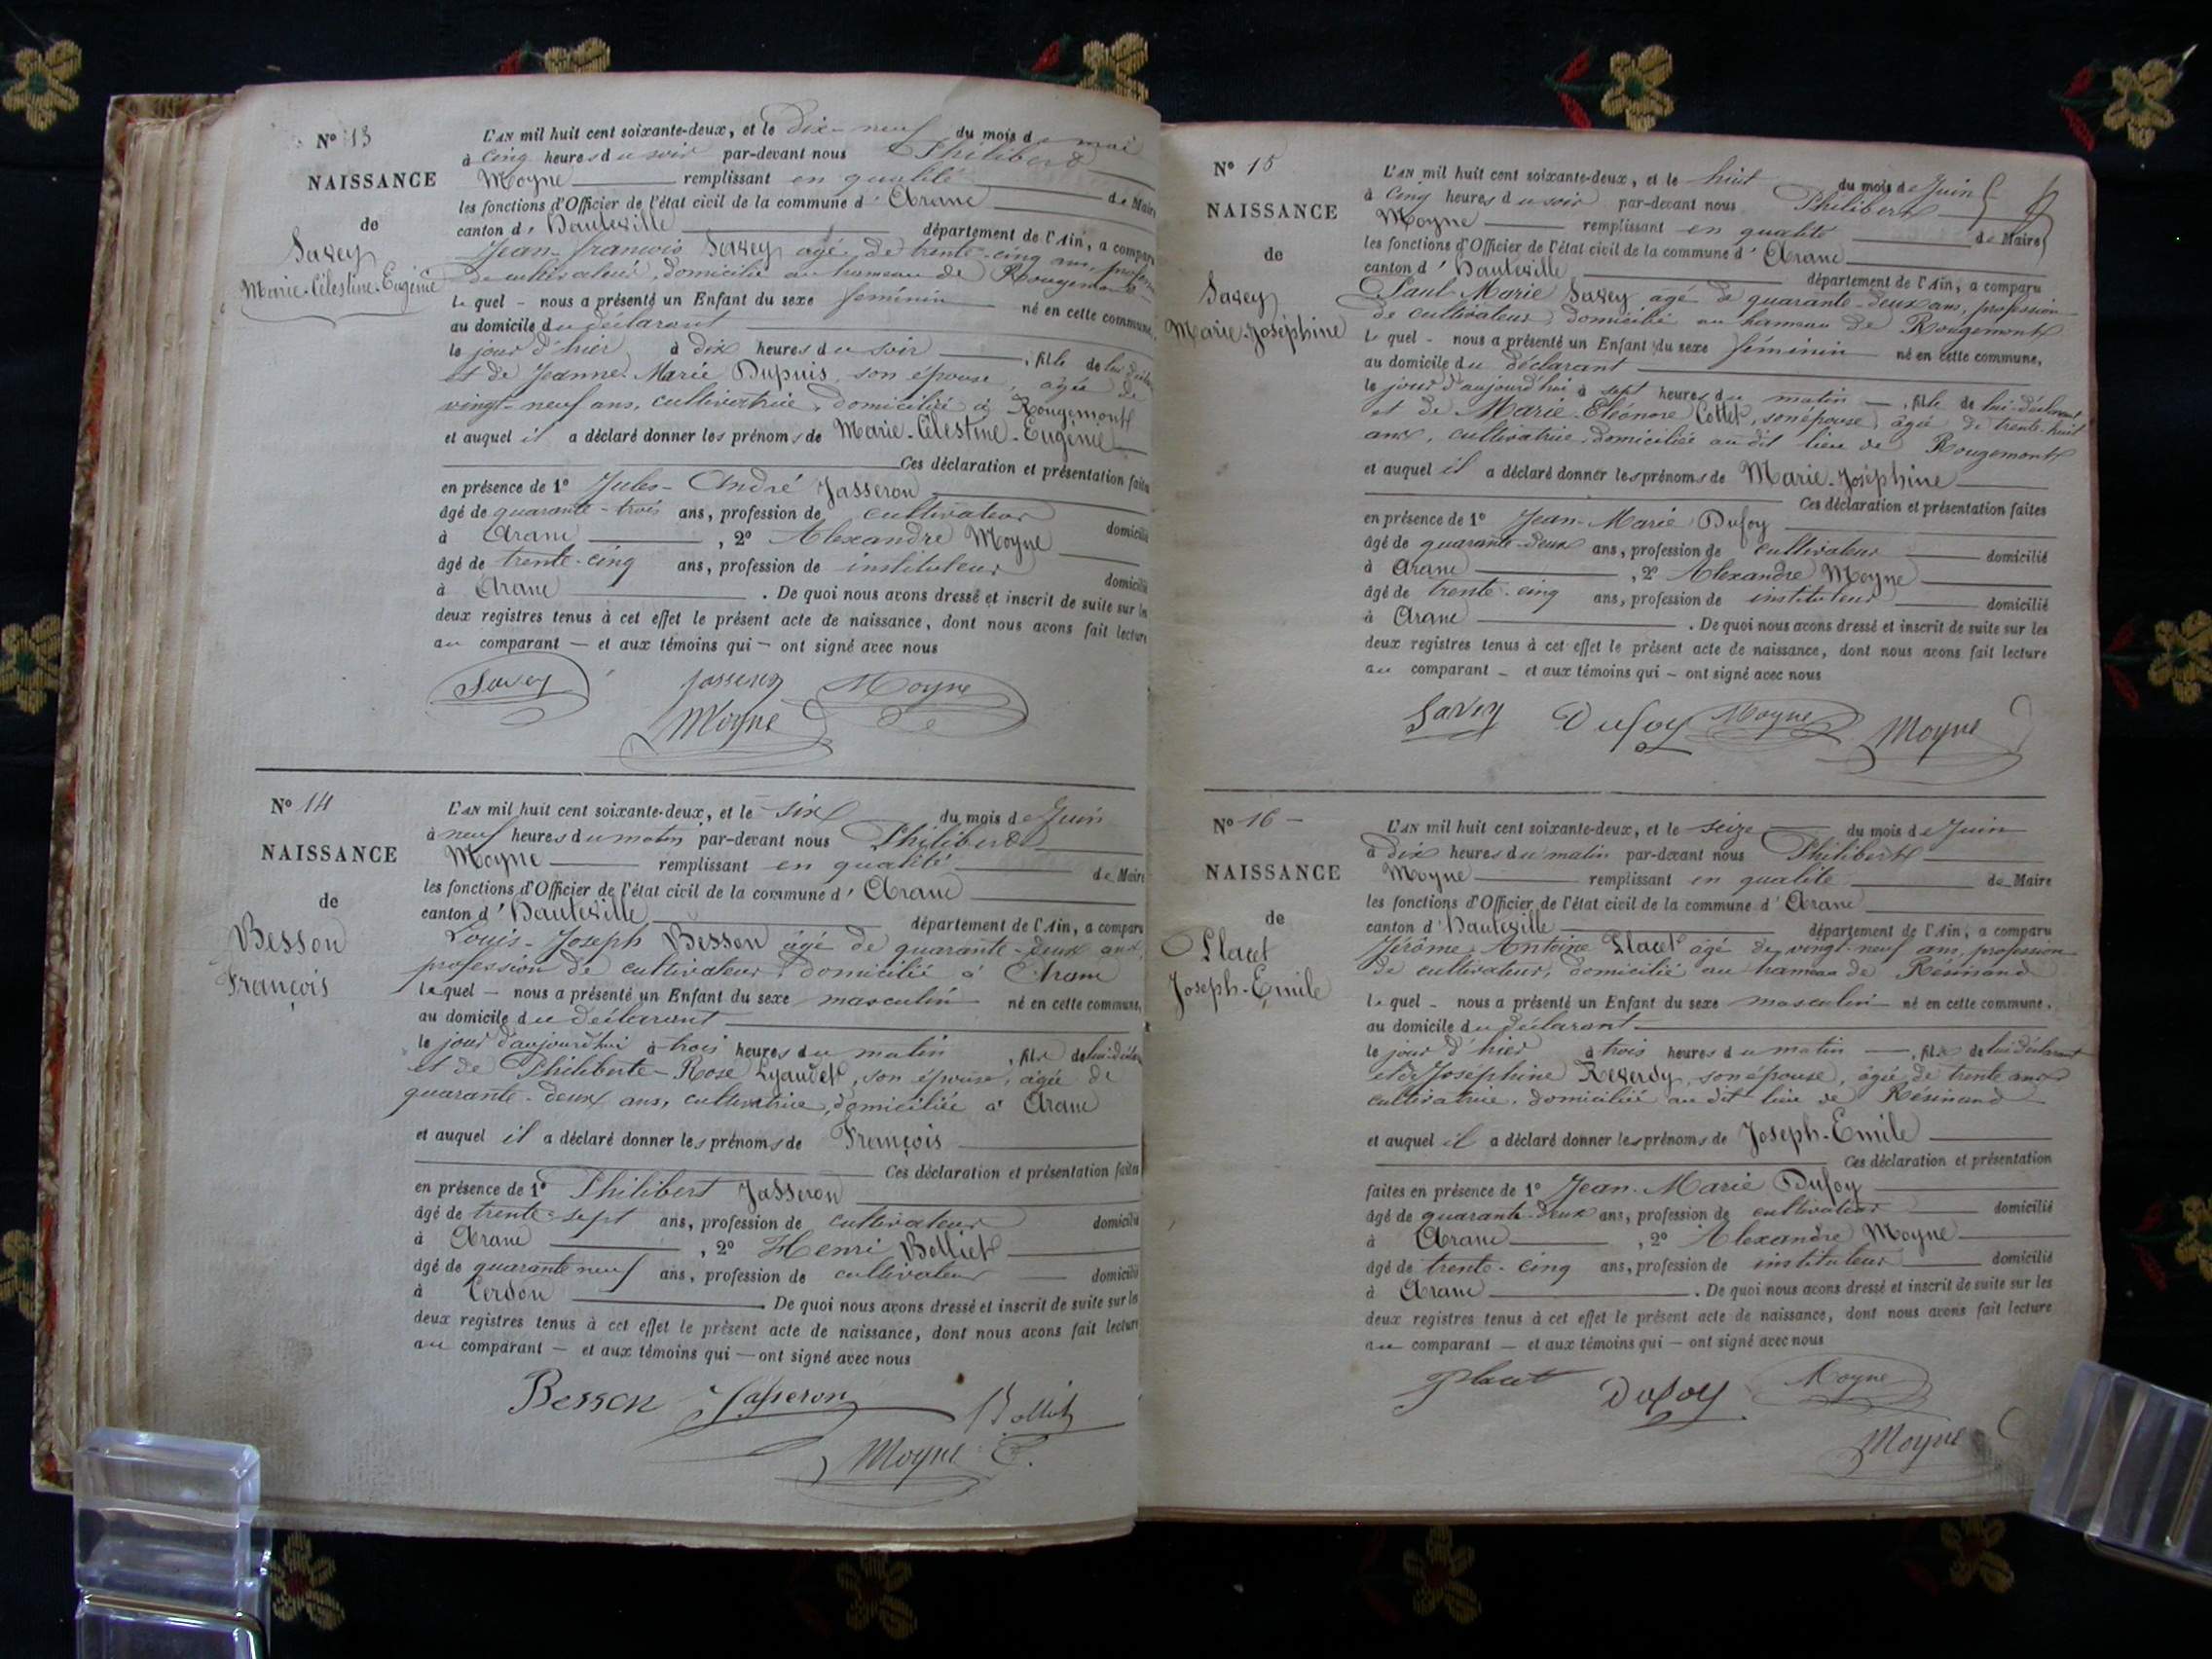 N° 13
NAISSANCE
de
Savey
Marie-Célestine-Eugénie
L'AN mil huit cent soixante-deux, et le dix-neuf du mois de mai
à cinq heures du soir par-devant nous Philibert
Moyne remplissant en qualité de Maire
les fonctions d'Officier de l'état civil de la commune d'Aranc
canton d'Hauteville département de l'Ain, a comparu
Jean-françois Savey agé de trente-cinq ans, profession
de cultivateur, domicilié au hameau de Rougemont
lequel - nous a présenté un Enfant du sexe féminin né en cette commune,
au domicile du déclarant
le jour d'hier à dix heures du soir, fille de lui
et de Jeanne-Marie Dupuis, son épouse, agée de
vingt-neuf ans, cultivatrice, domiciliée à Rougemont
et auquel il a déclaré donner les prénoms de Marie-Célestine-Eugénie
Ces déclaration et présentation faites
en présence de 1° Jules-André Jasseron
âgé de quarante-trois ans, profession de cultivateur domicilié
à Aranc, 2° Alexandre Moyne
âgé de trente-cinq ans, profession de instituteur domicilié
à Aranc. De quoi nous avons dressé et inscrit de suite sur les
deux registres tenus à cet effet le présent acte de naissance, dont nous avons fait lecture
au comparant - et aux témoins qui - ont signé avec nous
Savey Jasseron Moyne
Moyne
N° 14
NAISSANCE
de
Besson
François
L'AN mil huit cent soixante-deux, et le six du mois de Juin
à neuf heures du matin par-devant nous Philibert
Moyne remplissant en qualité de Maire
les fonctions d'Officier de l'état civil de la commune d'Aranc
canton d'Hauteville département de l'Ain, a comparu
Louis-Joseph Besson âgé de quarante-deux ans,
profession de cultivateur, domicilié à Aranc
lequel - nous a présenté un Enfant du sexe masculin né en cette commune,
au domicile du déclarant
le jour d'aujourd'hui à trois heures du matin, fils de lui
et de Philiberte-Rose Lyaudet, son épouse, agée de
quarante-deux ans, cultivatrice, domiciliée à Aranc
et auquel il a déclaré donner les prénoms de François
Ces déclaration et présentation faites
en présence de 1° Philibert Jasseron
âgé de trente-sept ans, profession de cultivateur domicilié
à Aranc, 2° Henri Bolliet
âgé de quarante neuf ans, profession de cultivateur domicilié
à Cerdon. De quoi nous avons dressé et inscrit de suite sur les
deux registres tenus à cet effet le présent acte de naissance, dont nous avons fait lecture
au comparant - et aux témoins qui - ont signé avec nous
Besson Jasseron Bolliet
Moyne
N° 15
NAISSANCE
de
Savey
Marie-Joséphine
L'AN mil huit cent soixante-deux, et le huit du mois de Juin
à cinq heures du soir par-devant nous Philibert
Moyne remplissant en qualité de Maire
les fonctions d'Officier de l'état civil de la commune d'Aranc
canton d'Hauteville département de l'Ain, a comparu
Paul-Marie Savey agé de quarante-deux ans, profession
de cultivateur, domicilié au hameau de Rougemont
lequel - nous a présenté un Enfant du sexe féminin né en cette commune,
au domicile du déclarant
le jour d'aujourd'hui à sept heures du matin, fille de lui déclarant
et de Marie-Eléonore Cottet, son épouse, âgée de trente-huit
ans, cultivatrice, domiciliée au dit lieu de Rougemont
et auquel il a déclaré donner les prénoms de Marie-Joséphine
Ces déclaration et présentation faites
en présence de 1° Jean-Marie Dufoy
âgé de quarante-deux ans, profession de cultivateur domicilié
à Aranc, 2° Alexandre Moyne
âgé de trente-cinq ans, profession de instituteur domicilié
à Aranc. De quoi nous avons dressé et inscrit de suite sur les
deux registres tenus à cet effet le présent acte de naissance, dont nous avons fait lecture
au comparant - et aux témoins qui - ont signé avec nous
Savey Dufoy Moyne Moyne
N° 16
NAISSANCE
de
Placet
Joseph-Emile
L'AN mil huit cent soixante-deux, et le seize du mois de Juin
à dix heures du matin par-devant nous Philibert
Moyne remplissant en qualité de Maire
les fonctions d'Officier de l'état civil de la commune d'Aranc
canton d'Hauteville département de l'Ain, a comparu
Jérôme-Antoine Placet agé de vingt-neuf ans, profession
de cultivateur, domicilié au hameau de Résinand
lequel - nous a présenté un Enfant du sexe masculin né en cette commune,
au domicile du déclarant
le jour d'hier à trois heures du matin, fils de lui déclarant
et de Joséphine Reverdy, son épouse, âgée de trente ans
cultivatrice, domiciliée au dit lieu de Résinand
et auquel il a déclaré donner les prénoms de Joseph-Emile
Ces déclaration et présentation
faites en présence de 1° Jean-Marie Dufoy
âgé de quarante-deux ans, profession de cultivateur domicilié
à Aranc, 2° Alexandre Moyne
âgé de trente-cinq ans, profession de instituteur domicilié
à Aranc. De quoi nous avons dressé et inscrit de suite sur les
deux registres tenus à cet effet le présent acte de naissance, dont nous avons fait lecture
au comparant - et aux témoins qui - ont signé avec nous
Placet Dufoy Moyne
Moyne